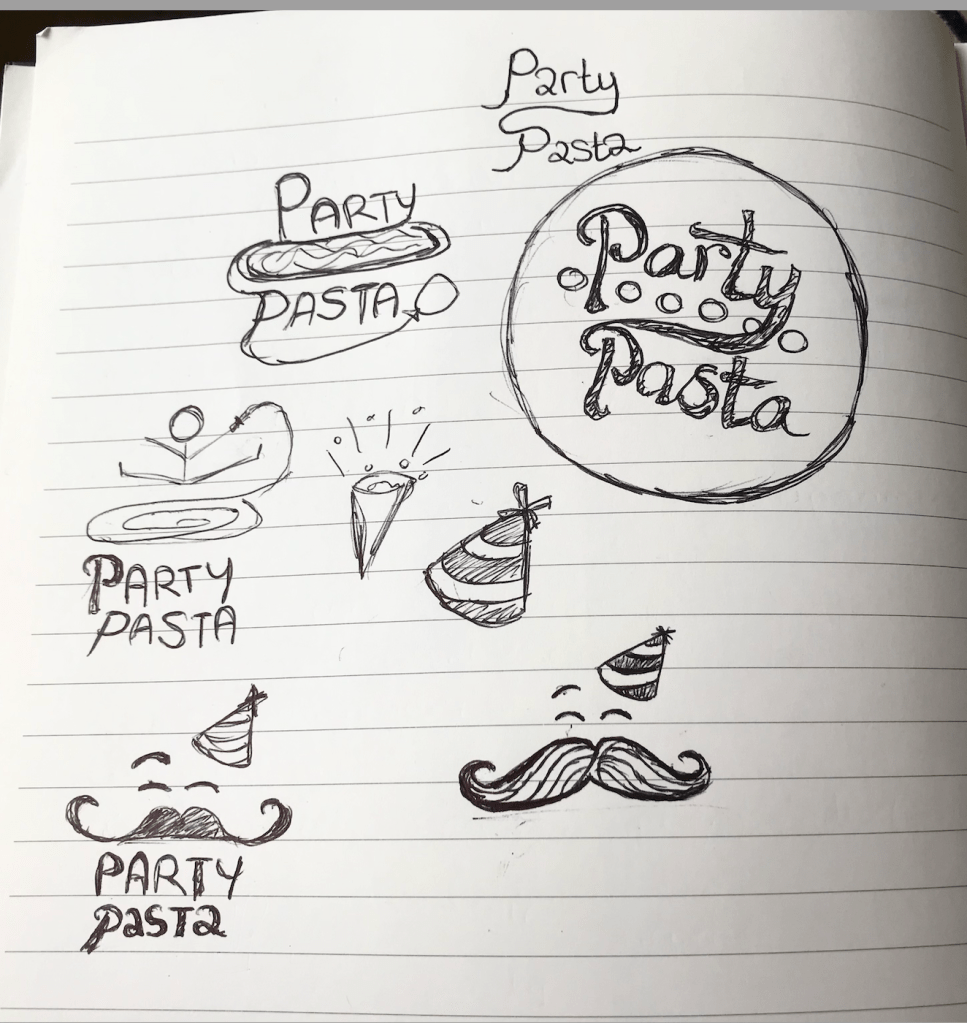 Party
Pasta
PARTY
PASTA
Party
Pasta
PARTY
PASTA
PARTY
PaSTa